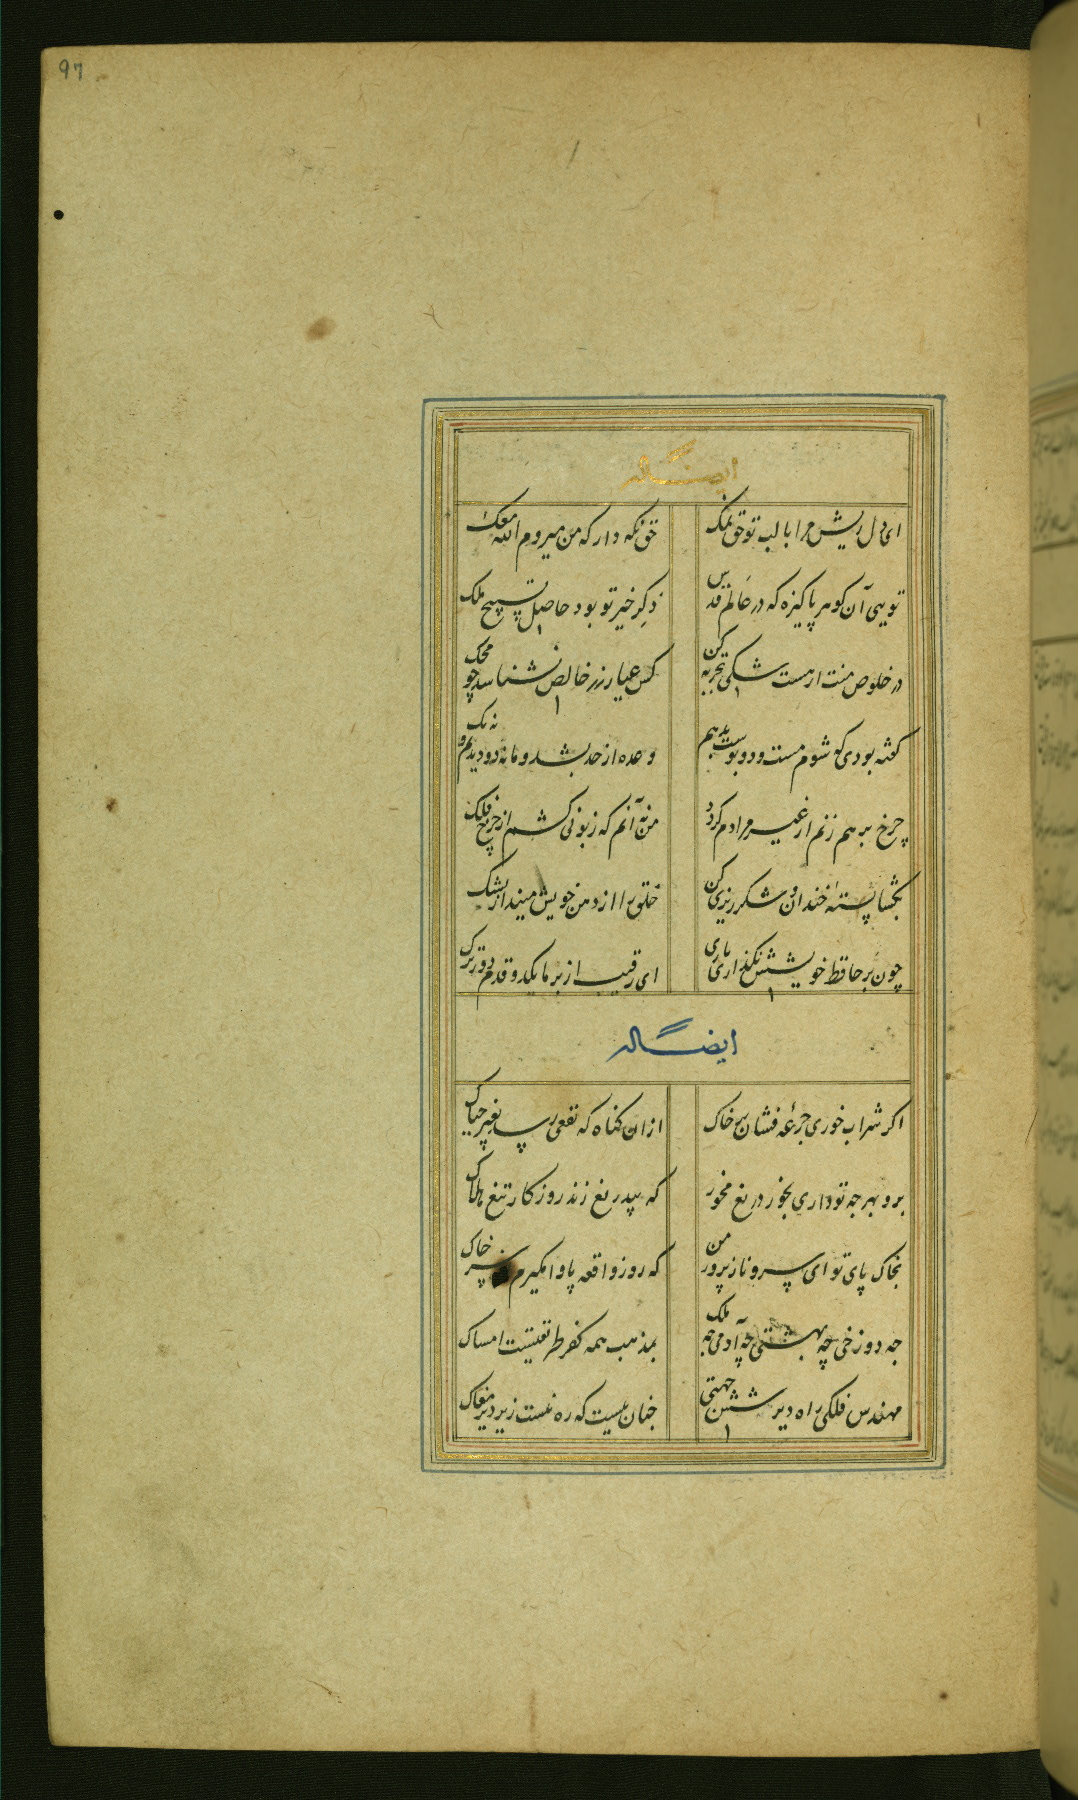 97
ایضاً له
ای دل ریش مرا با لب تو حق نمک حق نکه دار که من میروم الله معک
تویی آن کوهر پاکیزه که در عالم قدس ذکر خیر تو بود حاصل تسبیح ملک
در خلوص منت ار هست شکی تجربه کن کس عیار زر خالص نشناسد چو محک
کفته بودی که شوم مست و دو بوست بدهم وعده از حد بشد و ما نه دو دیدیم و نه یک
چرخ برهم زنم ار غیر مرادم کردد من نه آنم که زبونی کشم از چرخ فلک
بکشا پسته خندان و شکرریزی کن خلق را از دهن خویش مینداز بشک
چون بر حافظ خویشش نکذاری باری ای رقیب از بر ما یکدو قدم دورترک
ایضاً له
اکر شراب خوری جرعهٔ فشان بر خاک از ان کناه که نفعی رسد بغیر چباک
برو بهرجه تو داری بخور دریغ مخور که بیدریغ زند روزکار تیغ هلاک
بخاک پای تو ای سرو نازپرور من که روز واقعه پا وامکیرم سر خاک
جه دوزخی چه بهشتی چه آدمی جه ملک بمذهب همه کفر طریقتست امساک
مهندس فلکی راه دیر شش جهتی جنان ببست که ره نیست زیر دیر مغاک